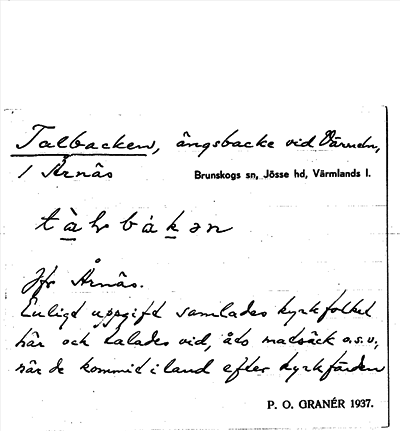 Talbacken, ängsbacke vid Värmeln,
i Årnäs
Brunskogs sn, Jösse hd, Värmlands l.
Jfr Årnäs.
Enligt uppgift samlades kyrkfolket
här och talades vid, åto matsäck o.s.v.,
när de kommit i land efter kyrkfärden
P. O. GRANÉR 1937.